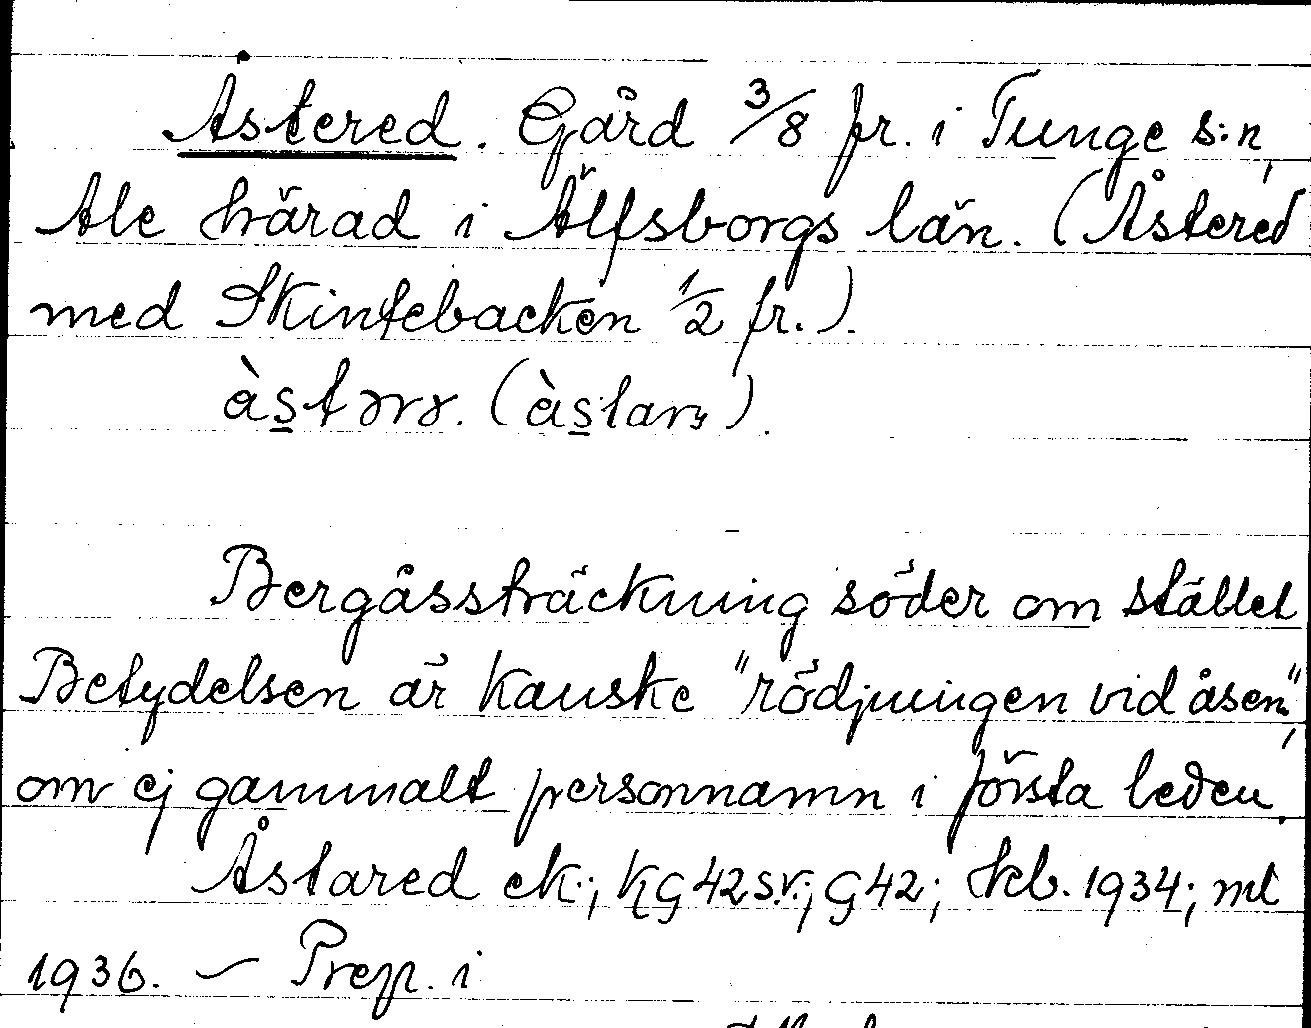 Åstered. Gård 3/8 fr. i Tunge s:n,
Ale härad i Älfsborgs län. (Åstered
med Skintebacken 1/2 fr.).
Bergåssträckning söder om stället
Betydelsen är kanske "rödjningen vid åsen",
om ej gammalt personnamn i första leden.
Åstared ek.; KG 42 s.v.; G 42; skb. 1934; ml
1936. — Prep. i